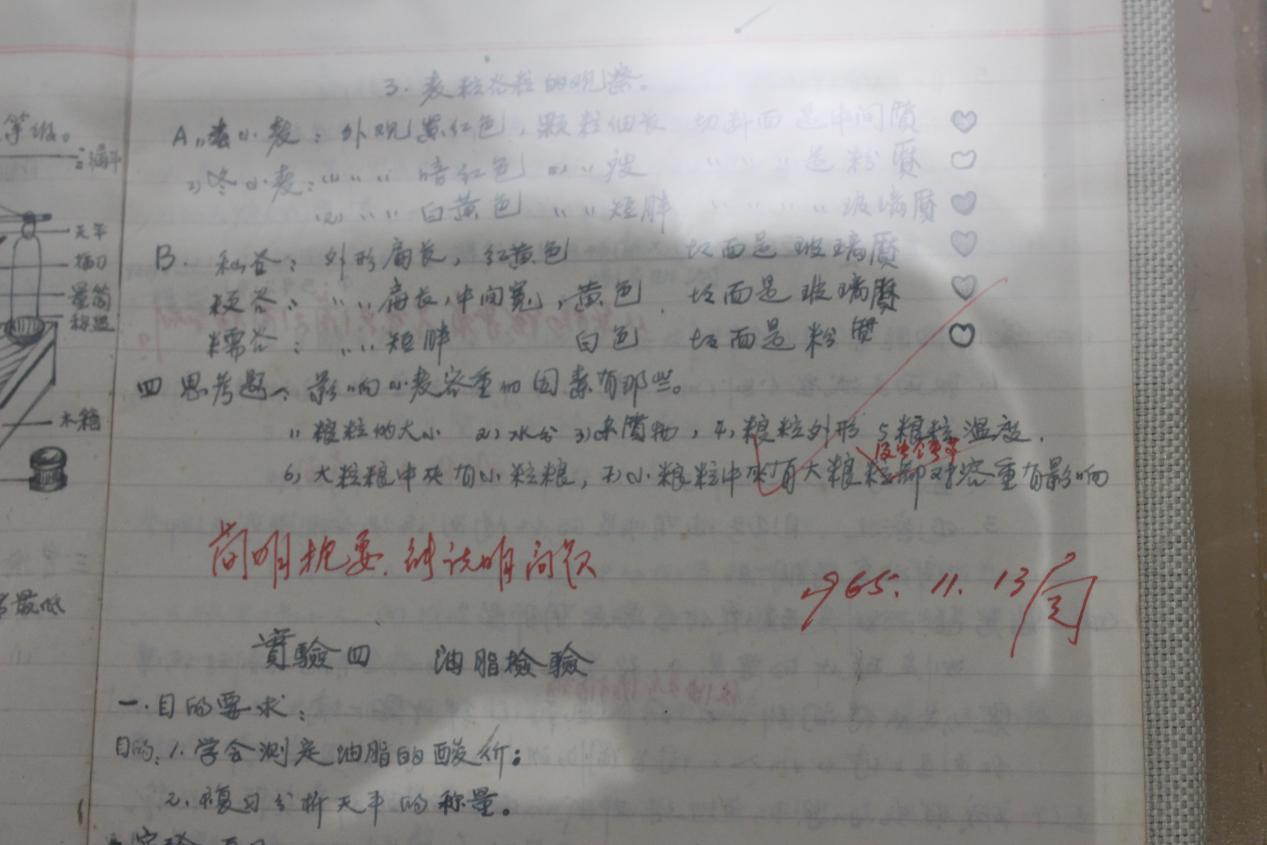 等组。
天平
插刀
量筒
木箱
最低
3. 麦粒谷粒的观察。
A 1) 春小麦：外观黄红色，颗粒细长 切断面是中间质
2) 冬小麦：〃 〃 〃 暗红色 〃 瘦 〃 〃 〃 是粉质
〃 〃 白黄色 〃 〃 短胖 〃 〃 〃 〃 玻璃质
B. 籼谷：外形扁长，红黄色 切面是玻璃质
粳谷：〃 〃 扁长，中间宽，黄色 切面是玻璃质
糯谷：〃 〃 短胖 白色 切面是粉质
四 思考题、影响小麦容重的因素有那些。
1) 粮粒的大小 2) 水分 3) 杂质物，4) 粮粒外形 5 粮粒温度.
6) 大粒粮中夹有小粒粮，7) 小粮粒中夹有大粮粒都对容重有影响
简明扼要，能说明问题
1965. 11. 13
實驗四 油脂檢驗
一. 目的要求：
目的：1. 学会测定油脂的酸价；
2. 複习分析天平的称量。